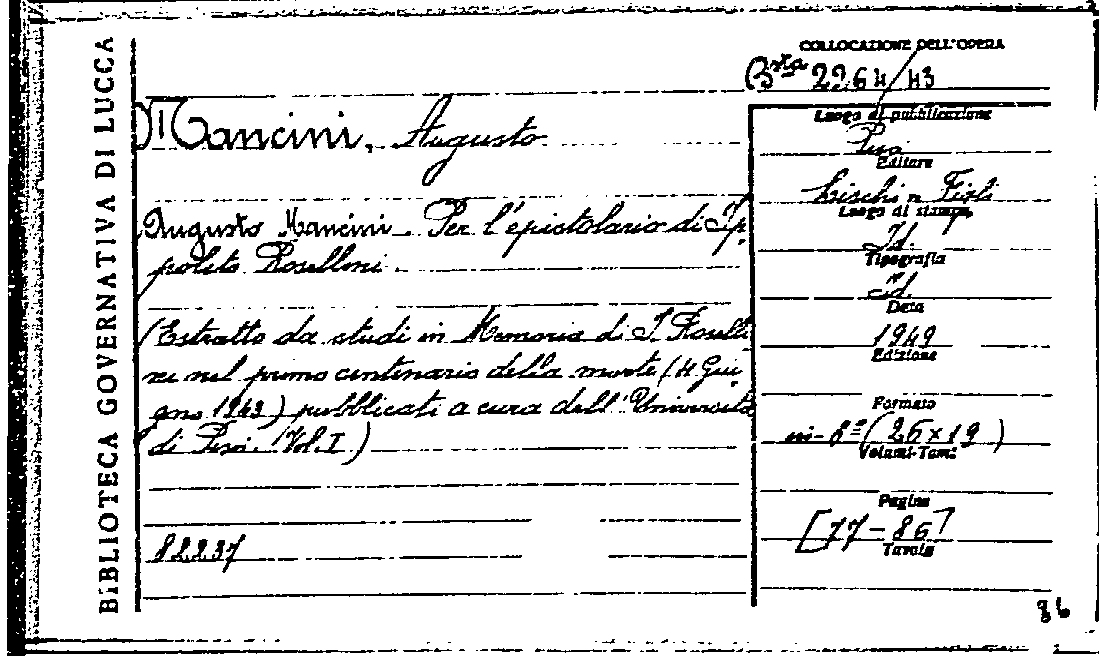 BIBLIOTECA GOVERNATIVA DI LUCCA
COLLOCAZIONE DELL'OPERA
Bsta 2264/43
Mancini, Augusto
Augusto Mancini - Per l'epistolario di Ip
polito Rosellini.
(Estratto da studi in Memoria di I. Roselli
ni nel primo centenario della morte (4 Giu
gno 1943) pubblicati a cura dell'Università
di Pisa. Vol. I)
82237
Luogo di pubblicazione
Pisa
Editore
Lischi e Figli
Luogo di stampa
Id.
Tipografia
Id.
Data
1949
Edizione
Formato
in-8º (26x19)
Volumi-Tomi
Pagine
[77-86]
Tavole
86